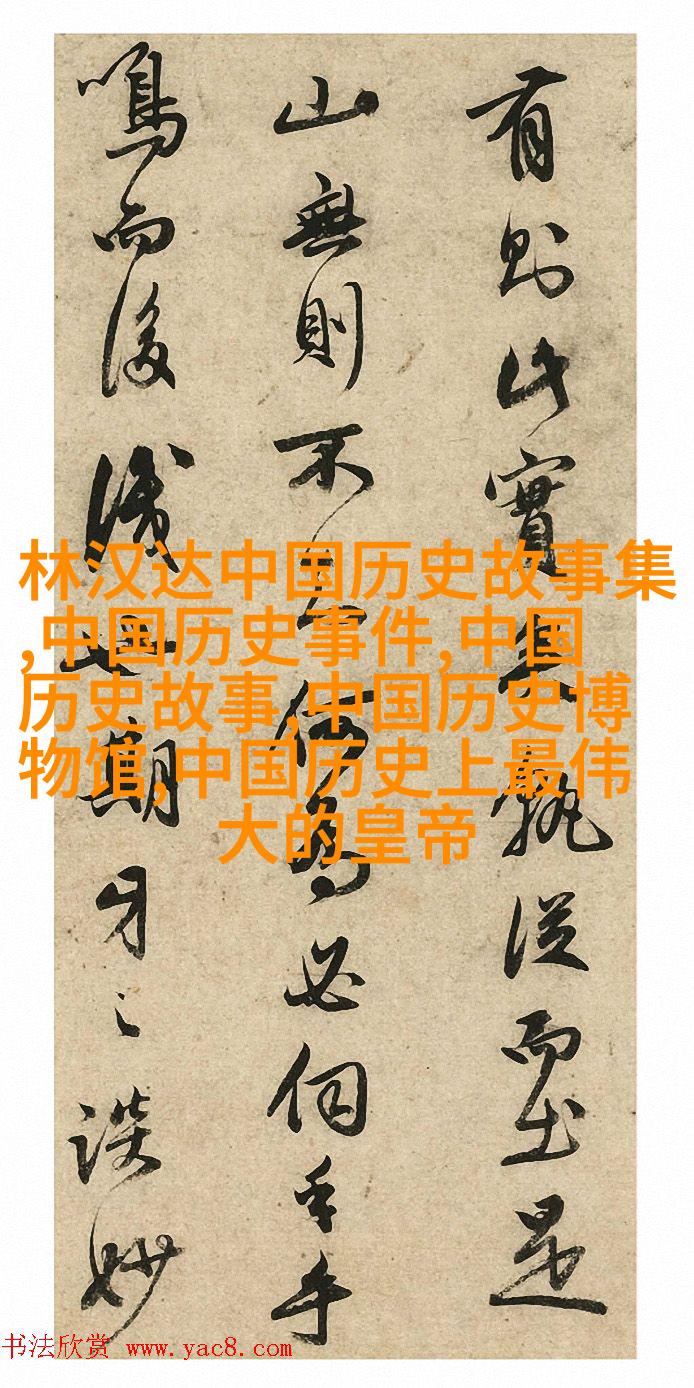 有則此實其孰從而出是
山無則不何為必何手
鳴而後也期牙談妙
林汉达中国历史故事集
,中国历史事件,中国
历史故事,中国历史博
物馆,中国历史上最伟
大的皇帝
书法欣赏 www.yac8.com